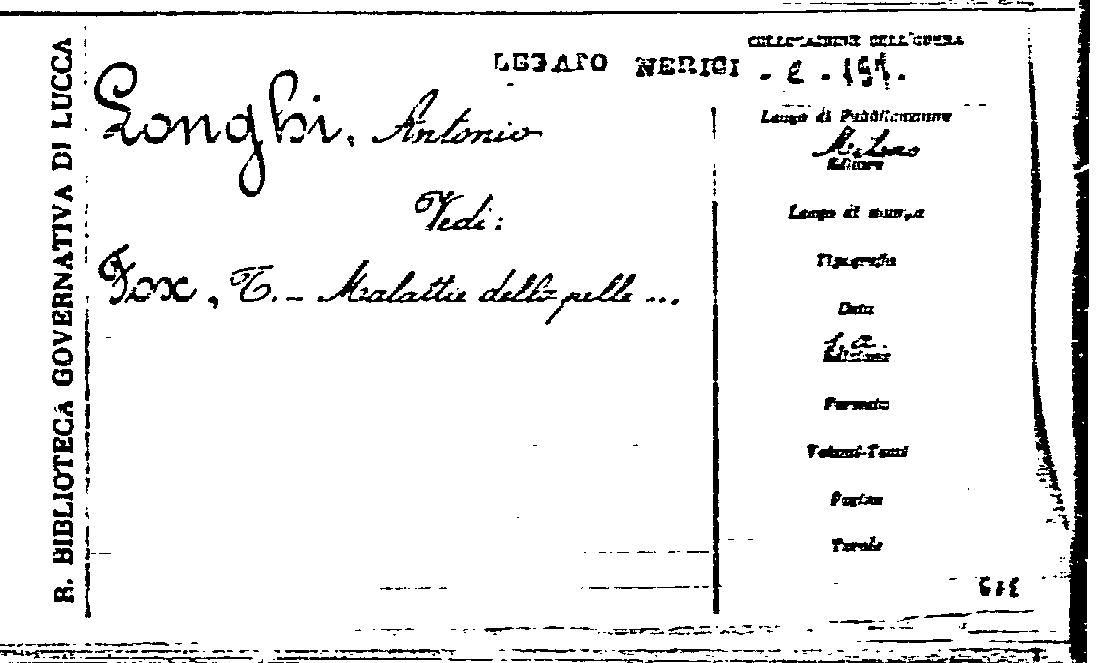 R. BIBLIOTECA GOVERNATIVA DI LUCCA
COLLOCAZIONE DELL'OPERA
LEGATO NERICI - 2 - 191.
Longhi, Antonio
Vedi:
Fox, T. - Malattie della pelle ...
Luogo di Pubblicazione
Milano
Editore
Luogo di stampa
Tipografia
Data
s. a.
Edizione
Formato
Volumi-Tomi
Pagine
Tavole